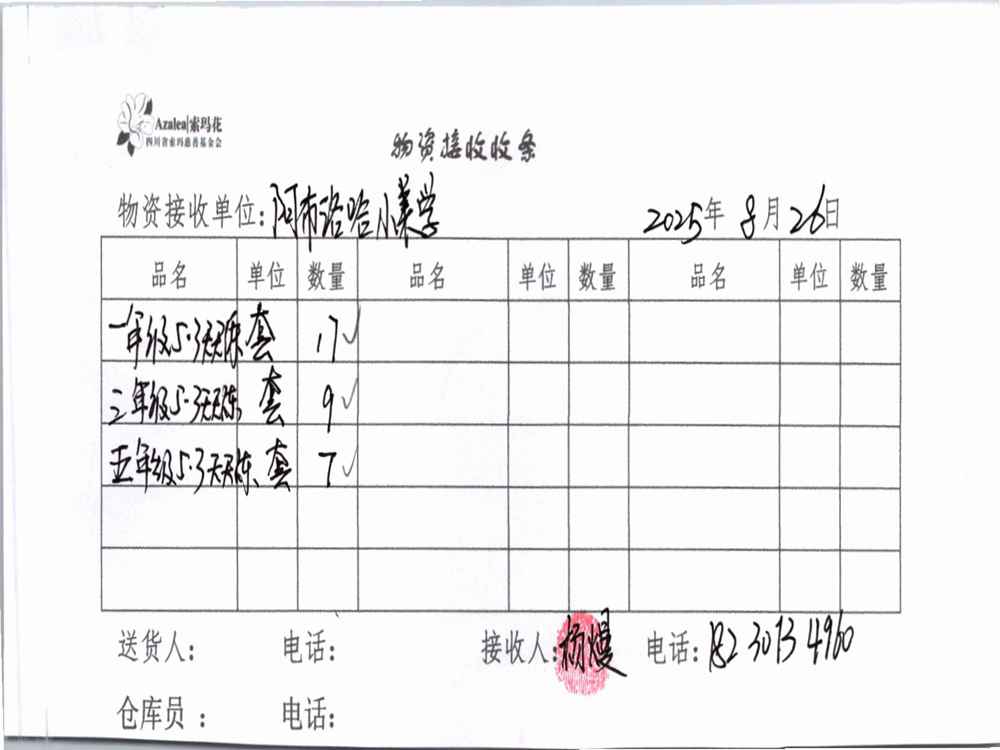 Azalea|索玛花
四川省索玛慈善基金会
物资接收收条
物资接收单位:阿布洛哈小学 2025年8月26日
品名 单位 数量 品名 单位 数量 品名 单位 数量
一年级5·3天天练 套 17
三年级5·3天天练 套 9
五年级5·3天天练 套 7
送货人: 电话: 接收人:杨 电话:182 3013 4960
仓库员: 电话: